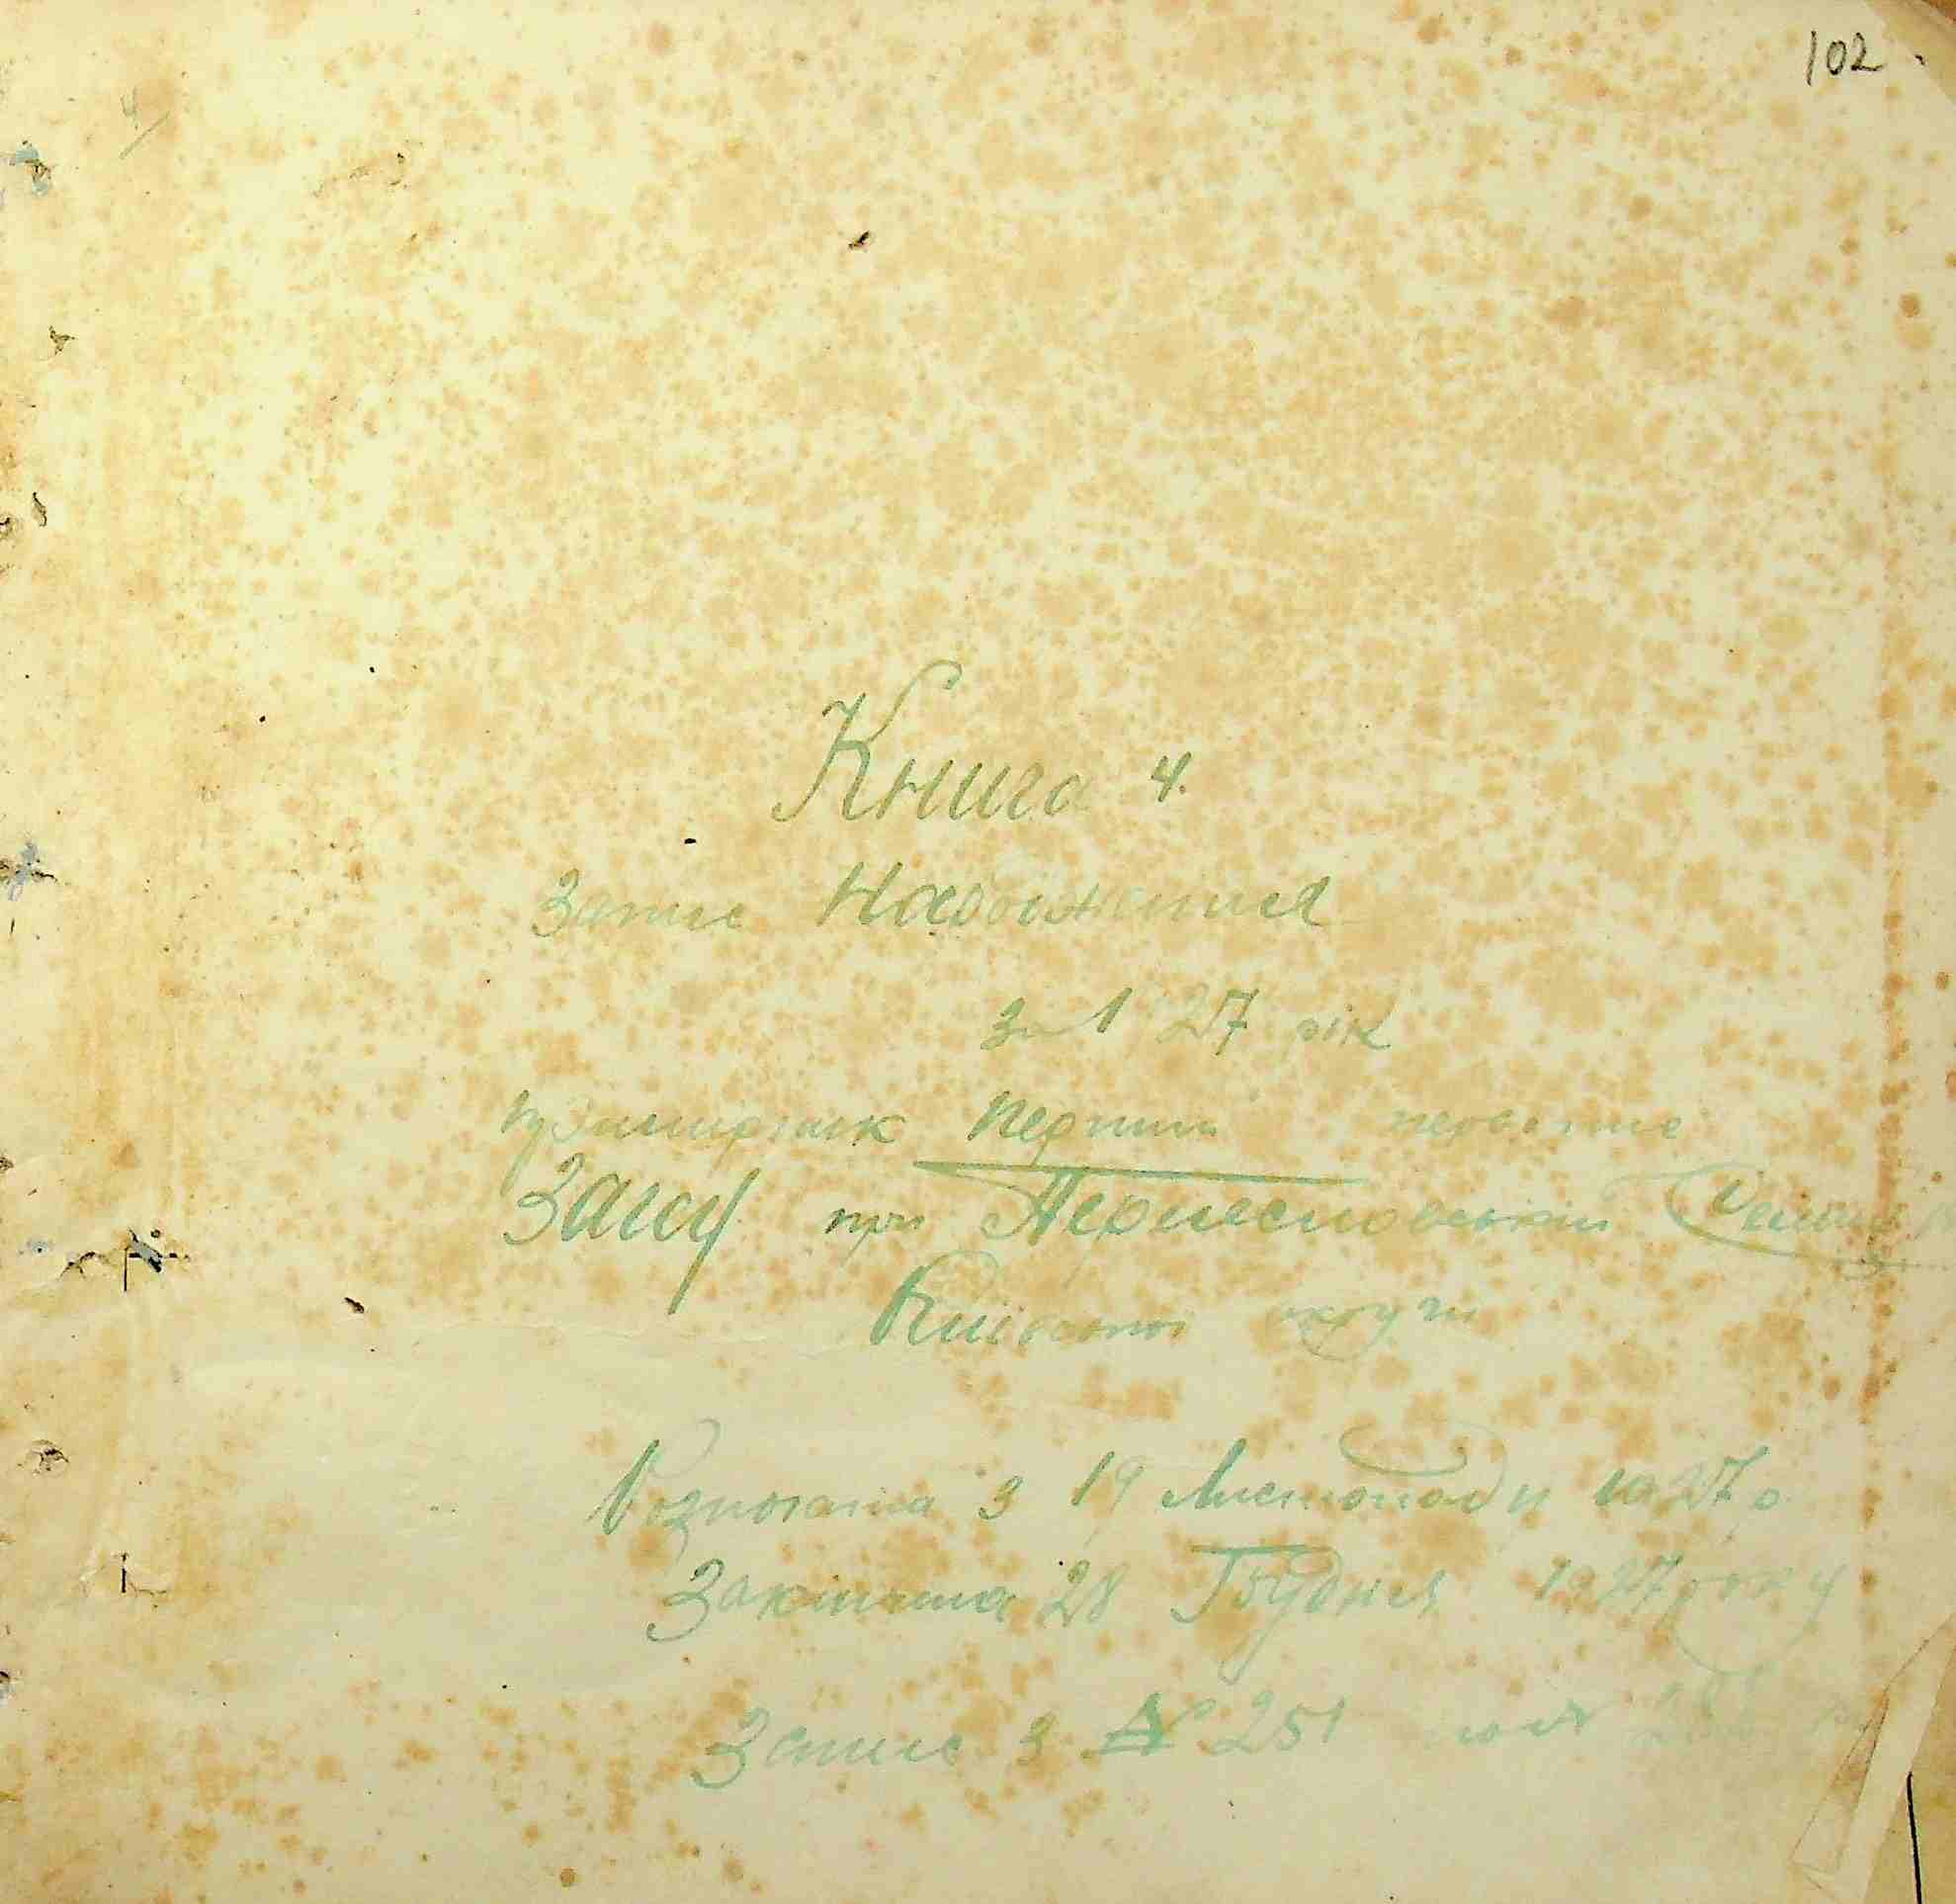 102
4
Книга 4.
Запис Народження
за 1927 рік
Примірник Перший
Загсу при
Київської округи
Розпочата з 19 Листопаду 1927 р.
Закінчена 28 Грудня 1927 року
Запис з № 251 по №